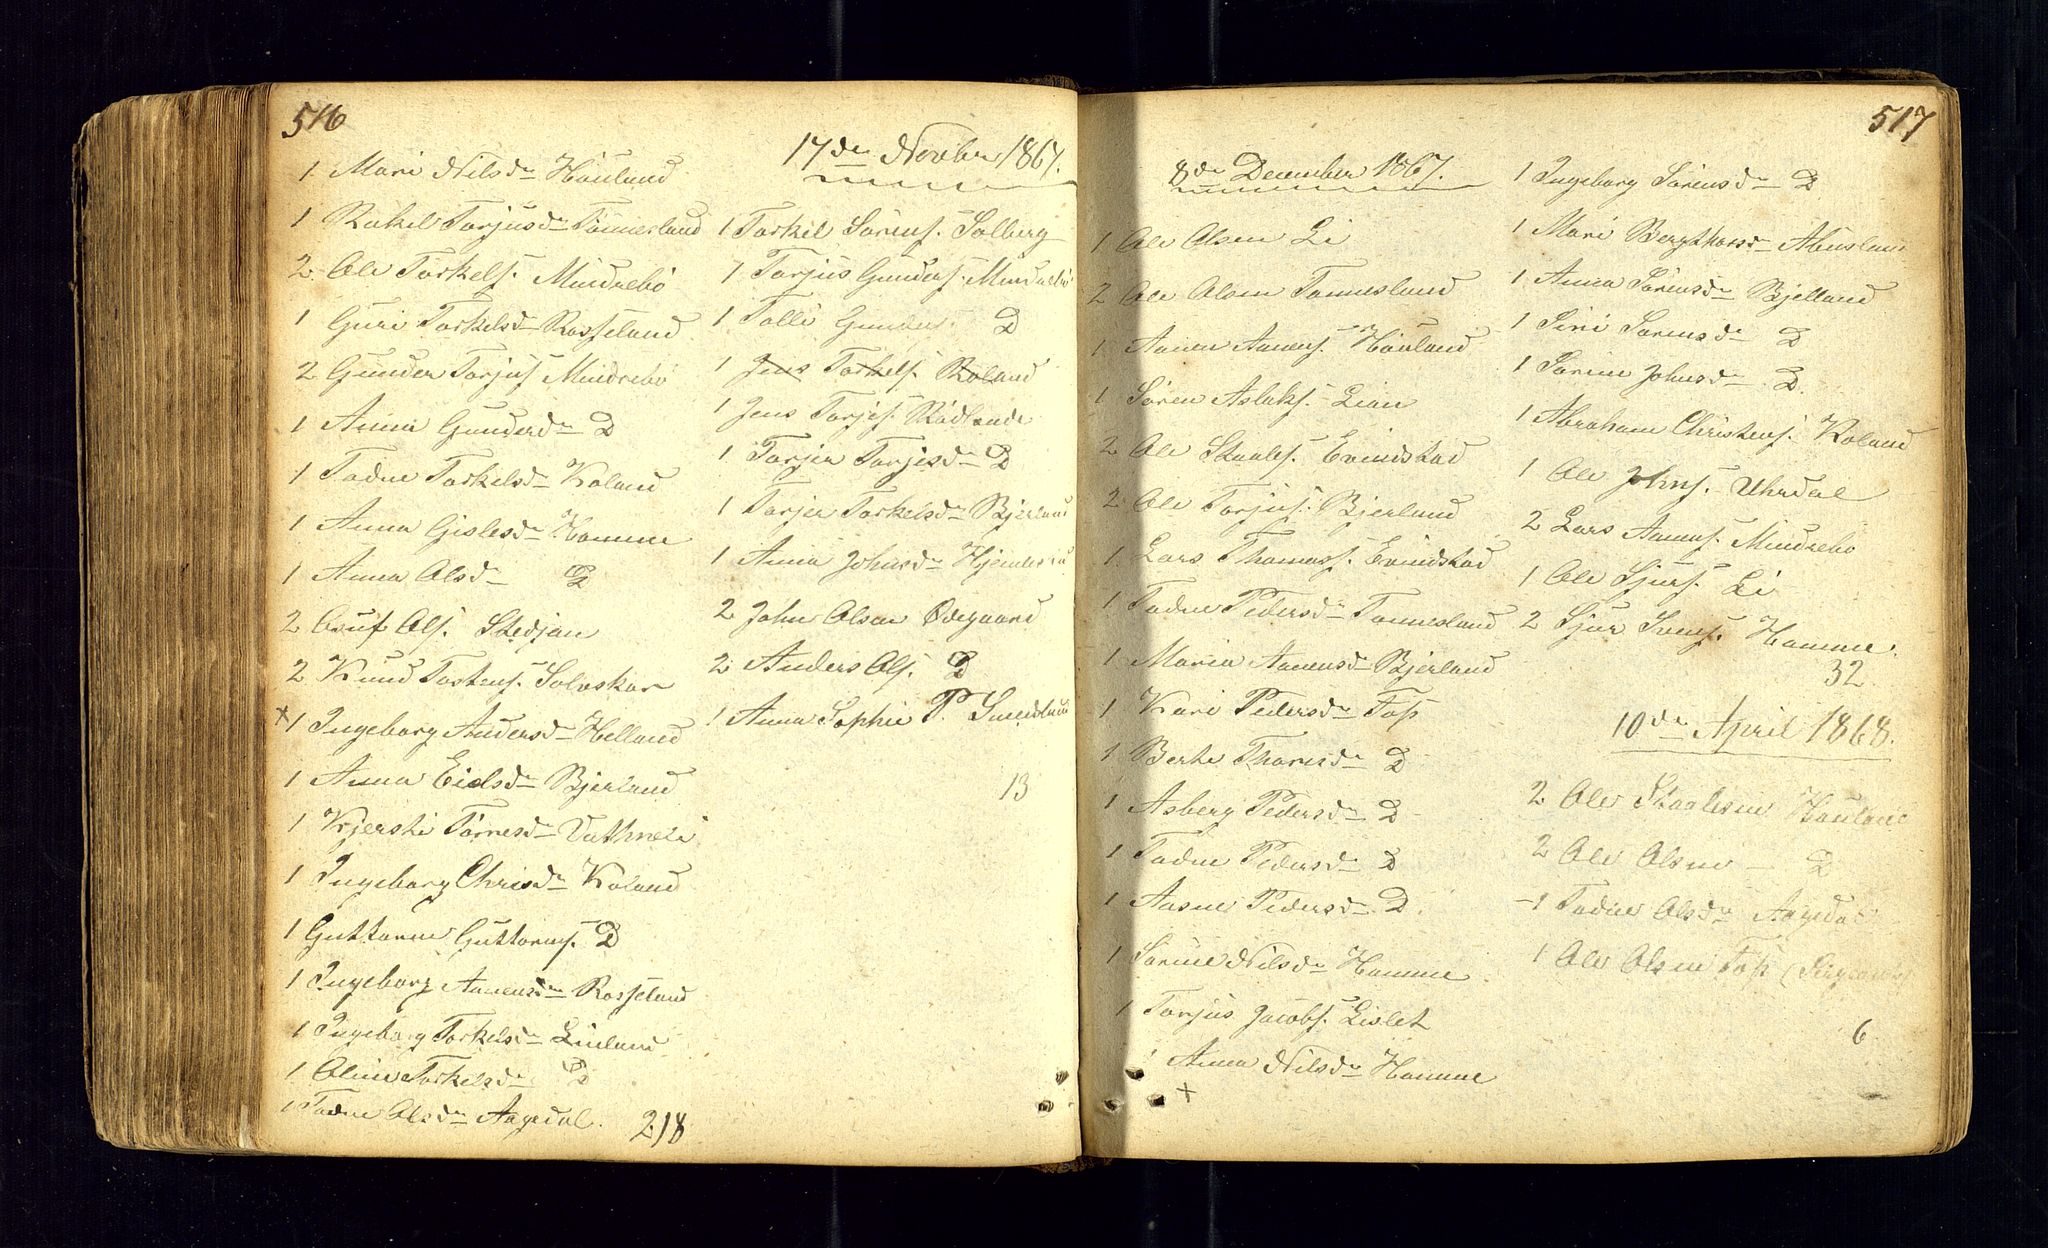 516
1 Mari Nilsdr Håuland
1 Rakel Torjusdr Tonnesland
2 Ole Torkels. Mindrebö
1 Guri Torkelsdr Rosseland
2 Gunder Torjus. Mindrebö
1 Anna Gundersdr D
1 Todne Torkelsdr Roland
1 Anna Gislesdr Homme
1 Anna Olsdr D
2 Ols. Stedjan
2 Knud Tostens. Solvskar
x 1 Ingeborg Andersdr Helland
1 Anna Eielsdr Bjerland
1 Kjersti Tönnesdr Vathneli
1 Ingeborg Chrisdr Roland
1 Guttorm Guttorms. D
1 Ingeborg Aanensdr Rosseland
1 Ingeborg Torkelsdr Linland
1 Oline Torkelsdr D
1 Todne Olsdr Aagedal. 218
17de Novber 1867.
1 Torkil Sörens. Solberg
1 Torjus Gunders. Mindrebö
1 Tolli Gunders. D
1 Jens Torkels. Roland
1 Jens Torjes. Rödland
1 Torjer Torjesdr D
1 Torjer Torkelsdr Bjerland
1 Anna Johnsdr
2 John Olsen Ödegaard
2 Anders Ols. D
1 Anna Sophie P. Smedsland
13
517
8de December 1867.
1 Ole Olsen Li
2 Ole Olsen Tonnesland
1 Aanen Aanens. Håuland
1 Sören Aslaks. Lian
2 Ole Staales. Evindstad
2 Ole Torjus. Bjerland
1 Lars Thomass. Evindstad
1 Todne Pedersdr Tonnesland
1 Maria Aanensdr Bjerland
1 Kari Pedersdr Foss
1 Berte Thorisdr D
1 Asberg Pedersdr D
1 Todne Pedersdr D
1 Aasne Pedersdr D.
1 Sorine Nilsdr Homme
1 Torjus Jacobs. Lislet
1 Anna Nilsdr Homme
x
1 Ingeborg Sörensdr D
1 Mari Bergthorsdr
1 Anna Sörensdr Bjelland
1 Siri Sorensdr D
1 Sorine Johnsdr D.
1 Abraham Christens. Roland
1 Ole Johns. Uhrdal
2 Lars Aanens. Mindrebo
1 Ole Sjurs. Li
2 Sjur Svens. Homme.
32
10de April 1868.
2 Ole Staalesen Håuland
2 Ole Olsen — D
1 Todne Olsdr Aagedal
1 Ole Olsen Foss
6